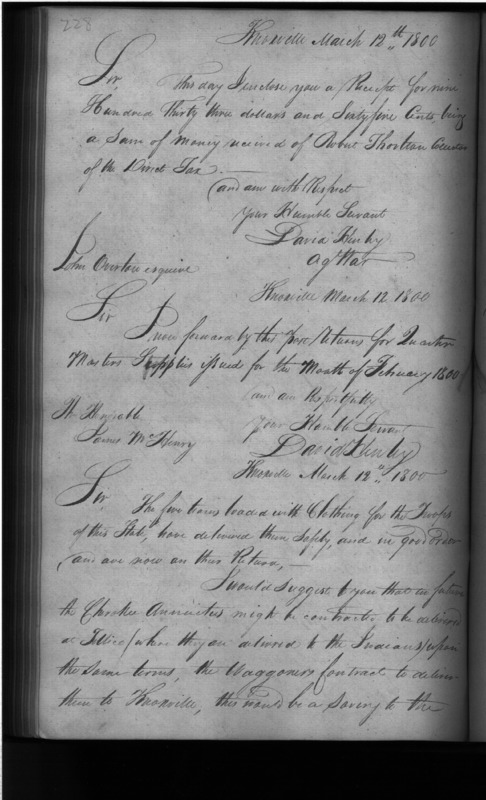 228
Knoxville March 12th 1800
Sir, This day I enclose you a Receipt for nine
Hundred Thirty three dollars and Sixty five Cents being
a Sum of Money received of Robert Thornton Collector
of the Direct Tax. —
and am with Respect
your Humble Servant
David Henley
Agt War
John Overton esquire
Knoxville March 12 1800
Sir
I now forward by this Post Returns for Quarter
Masters Supplies issued for the Month of February 1800
and am Respectfully
your Humble Servant
David Henley
The Honorable
James McHenry
Knoxville March 12th 1800
Sir, The five teams loaded with Clothing for the Troops
of this State, have delivered them Safely, and in good Order
and are now on their Return, —
I would Suggest to you that in future
the Cherokee Annuities might be contracted to be delivered
at Tellico (where they are delivered to the Indians) upon
the Same terms, the Waggoners contract to deliver
them to Knoxville, this would be a Saving to the